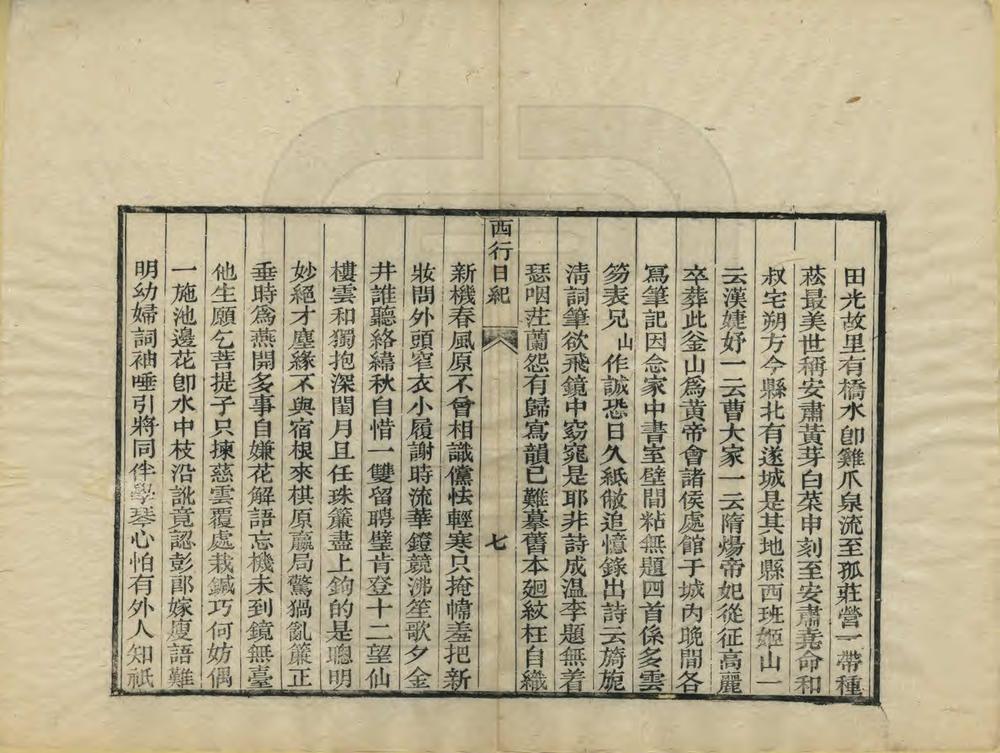 田光故里有橋水卽雞爪泉流至孤莊營一帶種
菘最美世稱安肅黃芽白菜申刻至安肅堯命和
叔宅朔方今縣北有遂城是其地縣西班姬山一
云漢婕妤一云曹大家一云隋煬帝妃從征高麗
卒葬此釜山爲黃帝會諸侯處館于城內晚間各
寫筆記因念家中書室壁間粘無題四首係多雲
笏表兄山作誠恐日久紙敝追憶錄出詩云旖旎
清詞筆欲飛鏡中窈窕是耶非詩成溫李題無着
瑟咽茳蘭怨有歸寫韻已難摹舊本廻紋枉自織
西行日紀
七
新機春風原不曾相識儻怯輕寒只掩幃羞把新
妝問外頭窄衣小履謝時流華鐙競沸笙歌夕金
井誰聽絡緯秋自惜一雙留聘璧肯登十二望仙
樓雲和獨抱深閨月且任珠簾盡上鉤的是聰明
妙絕才塵緣不與宿根來棋原贏局驚猧亂簾正
垂時爲燕開多事自嫌花解語忘機未到鏡無臺
他生願乞菩提子只揀慈雲覆處栽鍼巧何妨偶
一施池邊花卽水中枝沿訛竟認彭郞嫁廋語難
明幼婦詞袖唾引將同伴學琴心怕有外人知祇